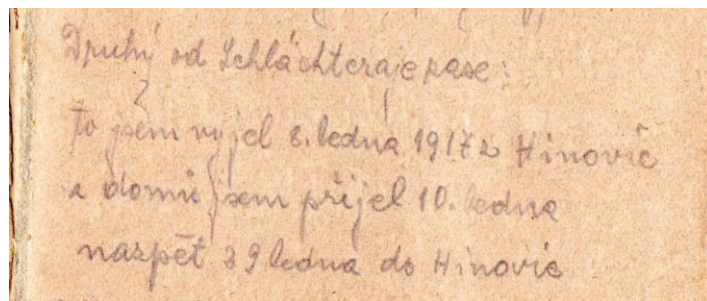 Druhý od Schláchteraje zase:
to jsem vyjel 8. ledna 1917 z Hinovic
a domů jsem přijel 10. ledna
nazpět 29 ledna do Hinovic